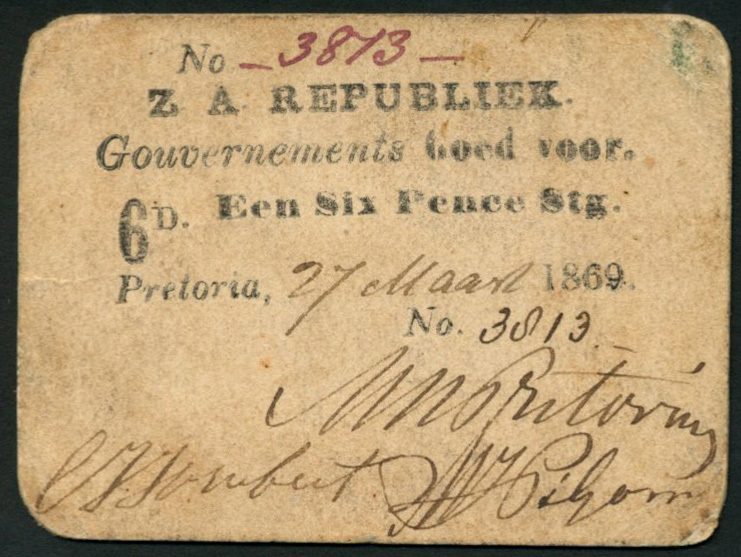 No - 3813 -
Z. A. REPUBLIEK.
Gouvernements Goed voor.
6D. Een Six Pence Stg.
Pretoria, 27 Maart 1869.
No. 3813.-
MWPretorius